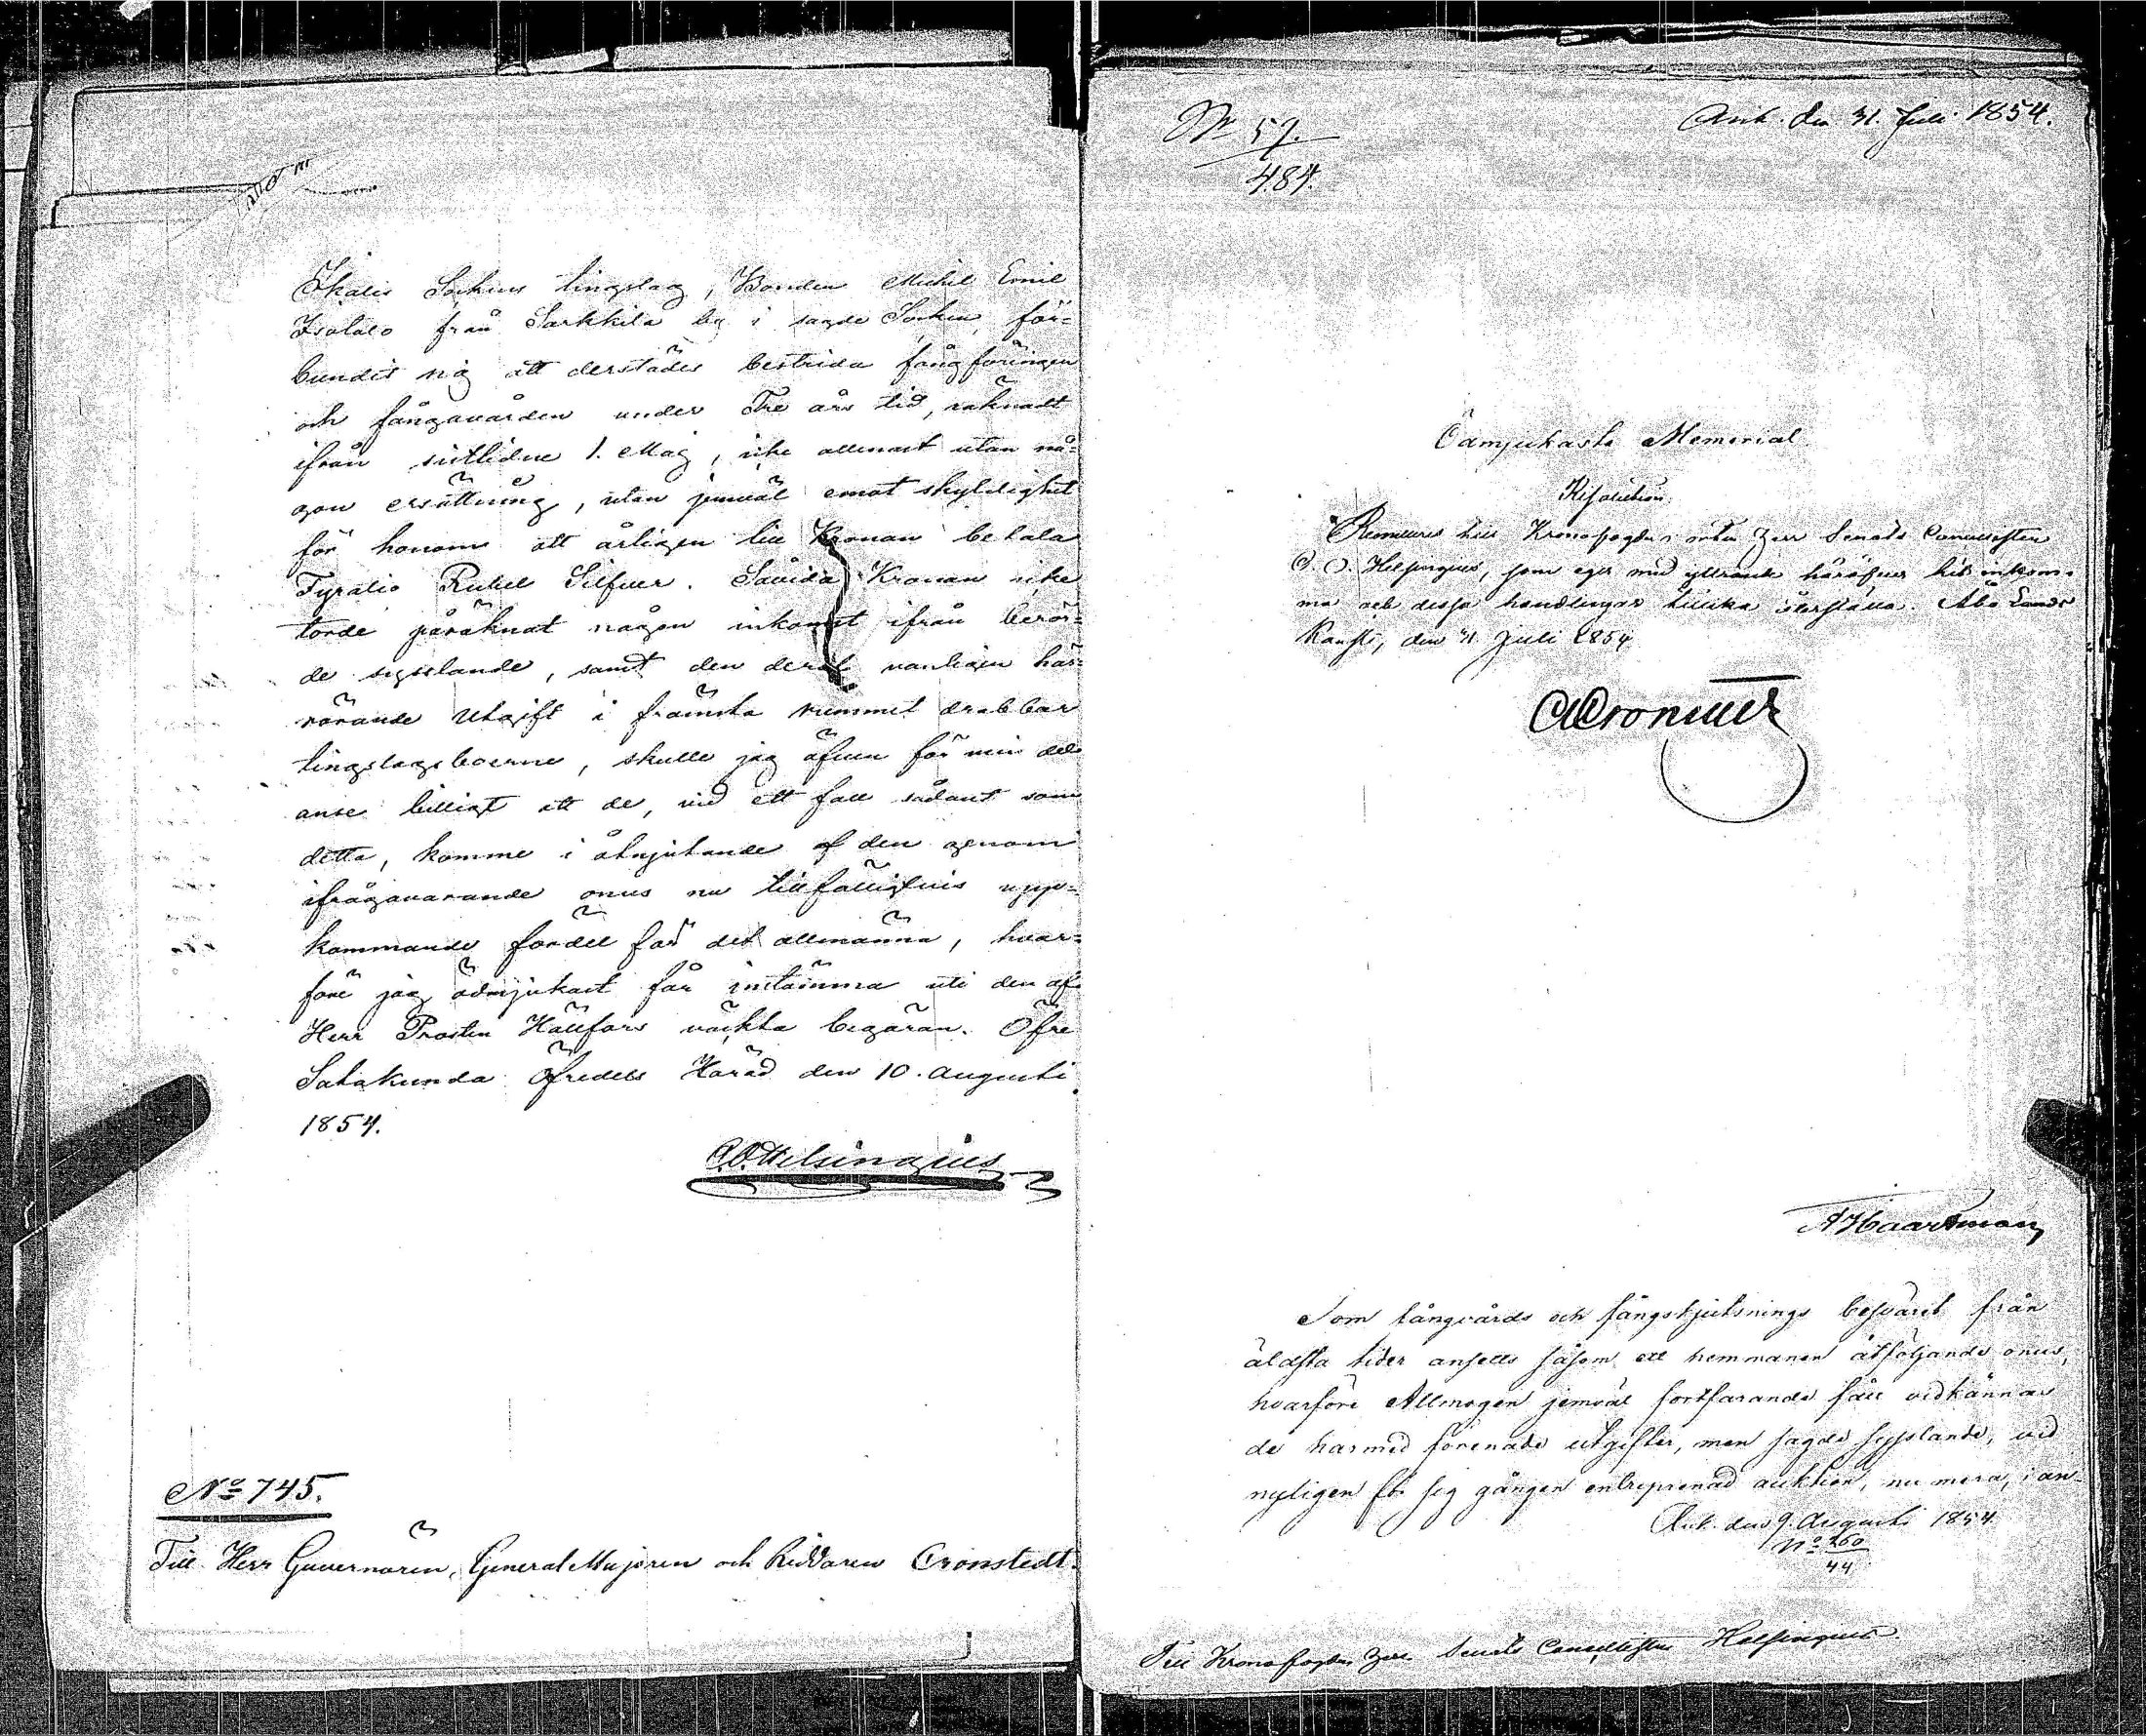 Ikalis Sockens tingslag, Bonden Michel Emil
Isotalo från Sarkkila by i sagde Socken, för-
bundit sig att derstädes bestrida fångföringen
och fångavården under Tre års tid, räknadt
ifrån sistlidne 1. Maj, icke allenast utan nå-
gon ersättning, utan jemväl emot skyldighet
för honom att årligen till Kronan betala
Fyratio Rubel Silfver. Såvida Kronan icke
torde påräknat någon inkomst ifrån berör-
de sysslande, samt den deraf vanligen här-
rörande Utgift i främsta rummet drabbar
tingslagsboerne, skulle jag äfven för min del
anse billigt att de, vid ett fall sådant som
detta, komme i åtnjutande af den genom
ifrågavarande onus nu tillfälligtvis upp-
kommande fördel för det allmänna, hvar-
före jag ödmjukast får instämma uti den af
Herr Prosten Hällfors väckta begäran. Öfre
Satakunda Öfredels Härad den 10. Augusti
1854.
C.O. Helsingius
No 745.
Till Herr Guvernören, General Majoren och Riddaren Cronstedt.
Nr 57.
484.
Ank. den 31. Juli 1854.
Ödmjukaste Memorial.
Resolution.
Remitteres till Kronofogden i orten Herr Senats Cancellisten
C. O. Helsingius, som eger med yttrande häröfver hit inkom-
ma och dessa handlingar tillika återställa. Åbo Lands
Kansli, den 31 Juli 1854
A Haartman
Som fångvårds och fångskjutsnings besväret från
äldsta tider ansetts såsom ett hemmanen åtföljande onus,
hvarföre Allmogen jemväl fortfarande fått vidkännas
de härmed förenade utgifter, men sagde sysslande, vid
nyligen för sig gången entreprenad auktion, nu mera, i an
Ank. den 9. Augusti 1854.
No 260
44
Till Kronofogden Herr Senats Cancellisten Helsingius.